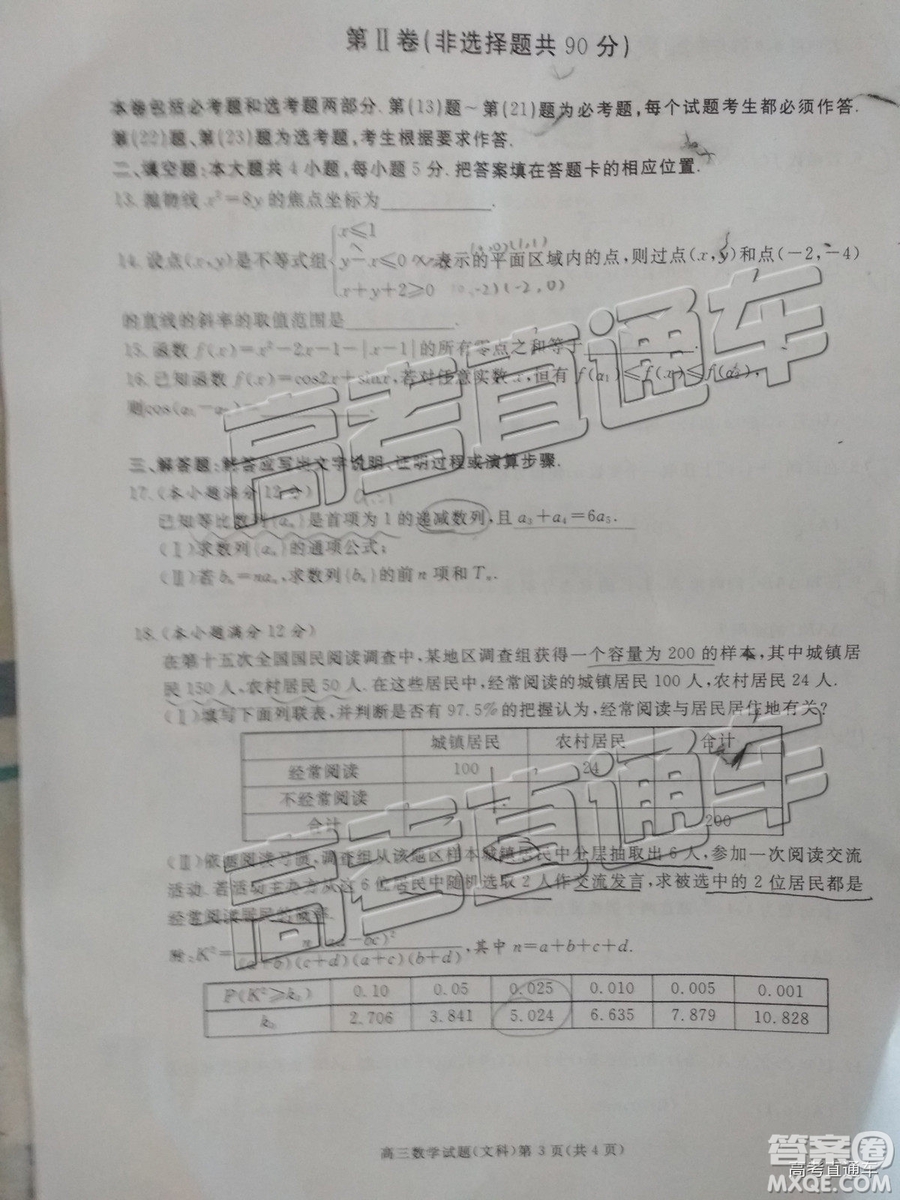 第Ⅱ卷(非选择题共90分)
本卷包括必考题和选考题两部分.第(13)题~第(21)题为必考题,每个试题考生都必须作答.
第(22)题、第(23)题为选考题,考生根据要求作答.
二、填空题:本大题共4小题,每小题5分.把答案填在答题卡的相应位置.
13.抛物线x²=8y的焦点坐标为
14.设点(x,y)是不等式组{x≤1 y-x≤0 x+y+2≥0 表示的平面区域内的点,则过点(x,y)和点(-2,-4)
(1,1)
,-2)(-2,0)
的直线的斜率的取值范围是
15.函数f(x)=x²-2x-1-|x-1|的所有零点之和等于
16.已知函数f(x)=cos2x+sinx,若对任意实数x,但有f(a₁)≤f(x)≤f(a₂),
则cos(a₁-a₂)=
三、解答题:解答应写出文字说明、证明过程或演算步骤.
17.(本小题满分12分)
已知等比数列{aₙ}是首项为1的递减数列,且a₃+a₄=6a₅.
(Ⅰ)求数列{aₙ}的通项公式;
(Ⅱ)若bₙ=naₙ,求数列{bₙ}的前n项和Tₙ.
18.(本小题满分12分)
在第十五次全国国民阅读调查中,某地区调查组获得一个容量为200的样本,其中城镇居
民150人,农村居民50人.在这些居民中,经常阅读的城镇居民100人,农村居民24人.
(Ⅰ)填写下面列联表,并判断是否有97.5%的把握认为,经常阅读与居民居住地有关?
城镇居民 农村居民 合计
经常阅读 100 24
不经常阅读
合计 200
(Ⅱ)依据阅读习惯,调查组从该地区样本城镇居民中分层抽取出6人,参加一次阅读交流
活动.若活动主办方从这6位居民中随机选取2人作交流发言,求被选中的2位居民都是
经常阅读居民的概率.
附:K²=n(ad-bc)²/(a+b)(c+d)(a+c)(b+d),其中n=a+b+c+d.
P(K²≥k₀) 0.10 0.05 0.025 0.010 0.005 0.001
k₀ 2.706 3.841 5.024 6.635 7.879 10.828
高三数学试题(文科)第3页(共4页)
高考直通车
高考直通车
答案圈
高考直通车
MXQE.COM